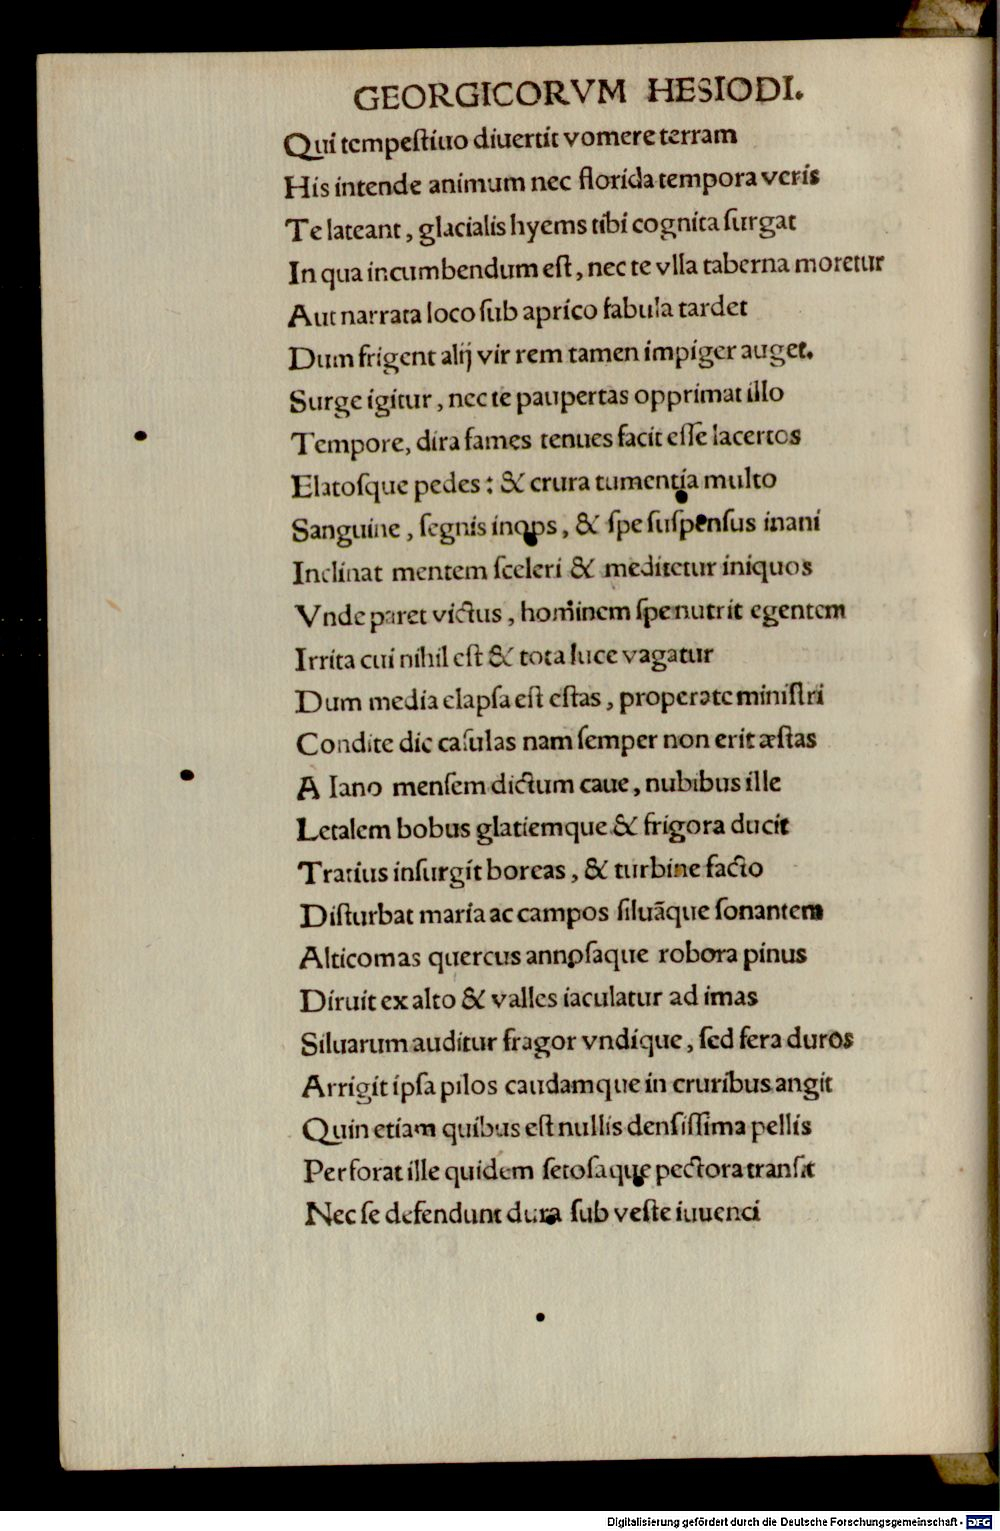 GEORGICORVM HESIODI.
Qui tempeſtiuo diuertit vomere terram
His intende animum nec florida tempora veris
Te lateant, glacialis hyems tibi cognita ſurgat
In qua incumbendum eſt, nec te vlla taberna moretur
Aut narrata loco ſub aprico fabula tardet
Dum frigent alij vir rem tamen impiger auget.
Surge igitur, nec te paupertas opprimat illo
Tempore, dira fames tenues facit eſſe lacertos
Elatoſque pedes: & crura tumentia multo
Sanguine, ſegnis inops, & ſpe ſuſpenſus inani
Inclinat mentem ſceleri & meditetur iniquos
Vnde paret victus, hominem ſpe nutrit egentem
Irrita cui nihil eſt & tota luce vagatur
Dum media elapſa eſt eſtas, properate miniſtri
Condite dic caſulas nam ſemper non erit æſtas
A Iano menſem dictum caue, nubibus ille
Letalem bobus glatiemque & frigora ducit
Tratius inſurgit boreas, & turbine facto
Diſturbat maria ac campos ſiluãque ſonantem
Alticomas quercus annoſaque robora pinus
Diruit ex alto & valles iaculatur ad imas
Siluarum auditur fragor vndique, ſed fera duros
Arrigit ipſa pilos caudamque in cruribus angit
Quin etiam quibus eſt nullis denſiſſima pellis
Perforat ille quidem ſetoſaque pectora tranſit
Nec ſe defendunt dura ſub veſte iuuenci
Digitalisierung gefördert durch die Deutsche Forschungsgemeinschaft - DFG